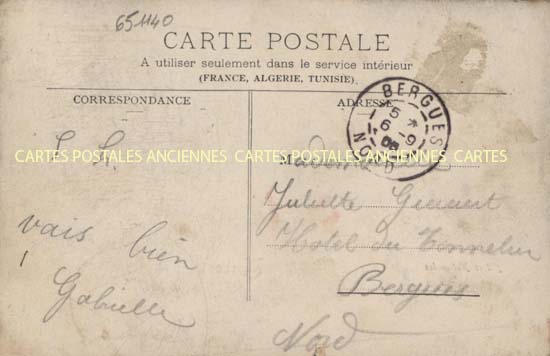 651140
CARTE POSTALE
A utiliser seulement dans le service intérieur
(FRANCE, ALGERIE, TUNISIE).
CORRESPONDANCE
ADRESSE
BERGUES
5 *
6 - 9
06
NORD
CARTES POSTALES ANCIENNES CARTES POSTALES ANCIENNES CARTES
vais bien
Gabrielle
Mademoiselle
Juliette
Hotel du Tonnelier
Bergues
Nord